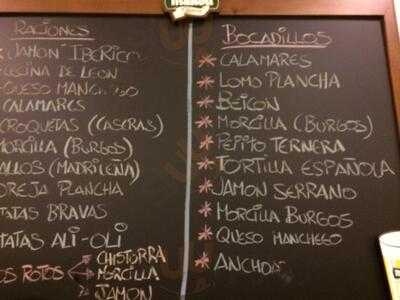 RACIONES
JAMON IBERICO
CECINA DE LEON
QUESO MANCHEGO
CALAMARES
CROQUETAS (CASERAS)
MORCILLA (BURGOS)
CALLOS (MADRILEÑA)
OREJA PLANCHA
PATATAS BRAVAS
PATATAS ALI-OLI
OS ROTOS
CHISTORRA
MORCILLA
JAMON
BOCADILLOS
CALAMARES
LOMO PLANCHA
BEICON
MORCILLA (BURGOS)
PEPITO TERNERA
TORTILLA ESPAÑOLA
JAMON SERRANO
MORCILLA BURGOS
QUESO MANCHEGO
ANCHOAS